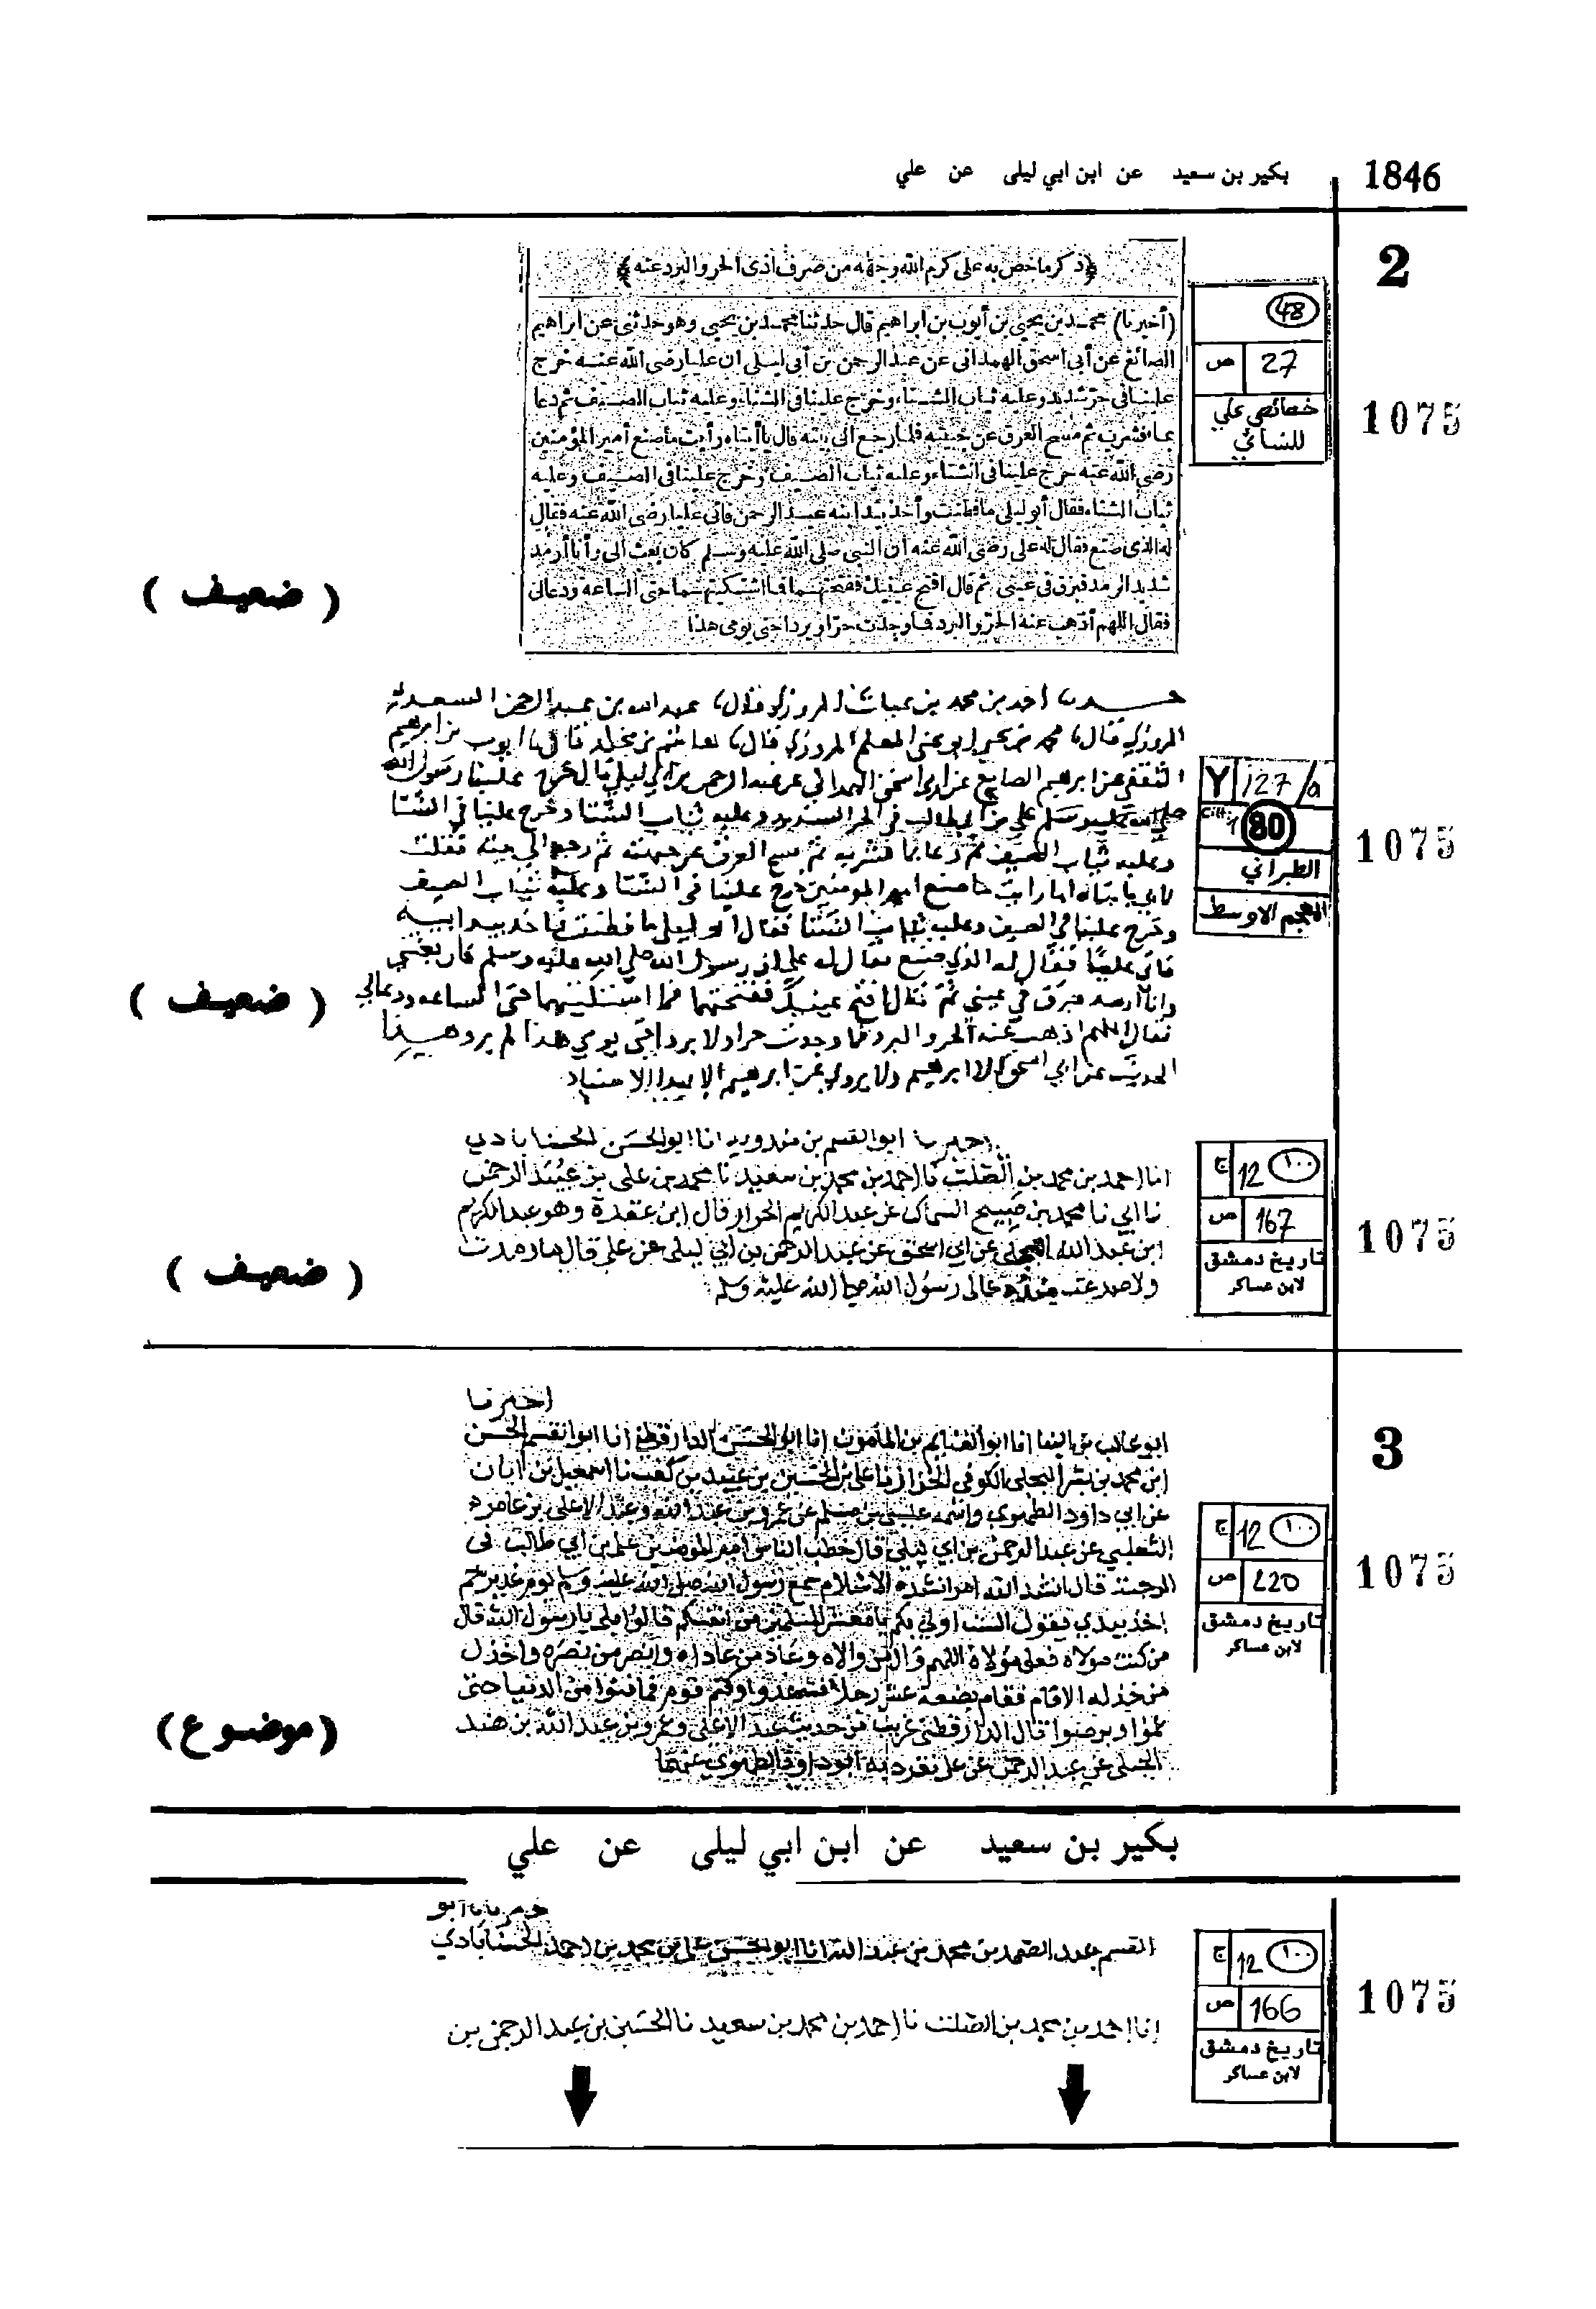 1846
بكير بن سعيد عن ابن ابي ليلى عن علي
2
﴿ذكر ما خص به علي كرم الله وجهه من صرف اذى الحر والبرد عنه﴾
48
27 ص
خصائص علي
للنسائي
1075
(أخبرنا) محمد بن يحيى بن أيوب بن ابراهيم قال حدثنا محمد بن يحيى وهو حدثني عن ابراهيم
الصائغ عن أبي اسحق الهمداني عن عبد الرحمن بن أبي ليلى ان عليا رضي الله عنه خرج
علينا في حر شديد وعليه ثياب الشتاء وخرج علينا في الشتاء وعليه ثياب الصيف ثم دعا
بماء فشرب ثم مسح العرق عن جبهته فلما رجع الى بيته قال يا أبتاه رأيت ما صنع أمير المؤمنين
رضي الله عنه خرج علينا في الشتاء وعليه ثياب الصيف وخرج علينا في الصيف وعليه
ثياب الشتاء فقال أبو ليلى ما فطنت وأخذ بيد ابنه عبد الرحمن فاتى عليا رضي الله عنه فقال
له الذي صنع فقال له علي رضي الله عنه ان النبي صلى الله عليه وسلم كان بعث الى وأنا أرمد
شديد الرمد فبزق في عيني ثم قال افتح عينيك ففتحتهما فما اشتكيتهما حتى الساعة ودعا لي
فقال اللهم أذهب عنه الحر والبرد فما وجدت حرا وبردا حتى يومي هذا
( ضعيف )
حدثنا احمد بن محمد بن المروزي قال عبد الله بن عبد الرحمن السعدي
المروزي قال المعلم المروزي قال بن مخلد قال ايوب بن ابراهيم
الثقفي عن ابرهيم الصايغ عن ابي اسحق الهمداني عن عبد الرحمن بن ابي ليلى قال خرج علينا رسول الله
صلى الله عليه وسلم علي بن ابي طالب في الحر الشديد وعليه ثياب الشتا وخرج علينا في الشتا
وعليه ثياب الصيف ثم دعا بما فشربه ثم مسح العرق عن جبهته ثم رجع الى بيته فقلت
لابي يا بتاه اما رايت ما صنع امير المومنين خرج علينا في الشتا وعليه ثياب الصيف
وخرج علينا في الصيف وعليه ثياب الشتا فقال ابو ليلى ما فطنت فاخذ بيد ابيه
فاتى عليا فقال له الذي صنع فقال له علي ان رسول الله صلى الله عليه وسلم كان بعثني
وانا ارمد فبزق في عيني ثم قال افتح عينيك ففتحتهما فما اشتكيتهما حتى الساعه ودعا لي
فقال اللهم اذهب عنه الحر والبرد فما وجدت حرا ولا بردا حتى يومي هذا لم يرو هذا
الحديث عن ابي اسحق الا ابرهيم ولا يروى عن ابرهيم الا بهذا الاسناد
Y 127/a
Cilt: 1 80
الطبراني
المعجم الاوسط
1075
( ضعيف )
اخبرنا ابو القسم بن مندويه انا ابو الحسن الحسنابادي
انا احمد بن محمد بن الصلت نا احمد بن محمد بن سعيد نا محمد بن علي بن عبيد الرحمن
نا ابي نا محمد بن صبيح السماك عن عبد الكريم الخزاز قال ابن عقدة وهو عبد الكريم
ابن عبد الله البجلي عن ابي اسحق عن عبد الرحمن بن ابي ليلى عن علي قال ما رمدت
ولا صدعت منذ دعا لي رسول الله صلى الله عليه وسلم
١٠٠ 12 ج
167 ص
تاريخ دمشق
لابن عساكر
1075
( ضعيف )
3
اخبرنا
ابو غالب بن البنا انا ابو الغنايم بن المأمون انا ابو الحسن الدارقطني انا ابو القسم الحسن
ابن محمد بن بشر البجلي الكوفي الخزاز نا علي بن الحسين بن عبيد بن كعب نا اسمعيل بن ابان
عن ابي داود الطهوي واسمه عيسى بن مسلم عن عمرو بن عبد الله وعبد الاعلى بن عامر
الثعلبي عن عبد الرحمن بن ابي ليلى قال خطب الناس امير المومنين علي بن ابي طالب في
الرحبة قال انشد الله امرا نشدة الاسلام سمع رسول الله صلى الله عليه وسلم يوم غدير خم
اخذ بيدي يقول الست اولى بكم يا معشر المسلمين من انفسكم قالوا بلى يا رسول الله قال
من كنت مولاه فعلي مولاه اللهم وال من والاه وعاد من عاداه وانصر من نصره واخذل
من خذله الا قام فقام بضعة عشر رجلا فشهدوا وكتم قوم فما فنوا من الدنيا حتى
عموا وبرصوا قال الدارقطني غريب من حديث عبد الاعلى وعمرو بن عبد الله بن هند
الجملي عن عبد الرحمن عن علي تفرد به ابو داود الطهوي عنهما
١٠٠ 12 ج
220 ص
تاريخ دمشق
لابن عساكر
1075
(موضوع)
بكير بن سعيد عن ابن ابي ليلى عن علي
اخبرنا ابو
القسم عبد الصمد بن محمد بن عبد الله انا ابو الحسن علي بن محمد بن احمد الحسنابادي
انا احمد بن محمد بن الصلت نا احمد بن محمد بن سعيد نا الحسين بن عبد الرحمن بن
١٠٠ 12 ج
166 ص
تاريخ دمشق
لابن عساكر
1075